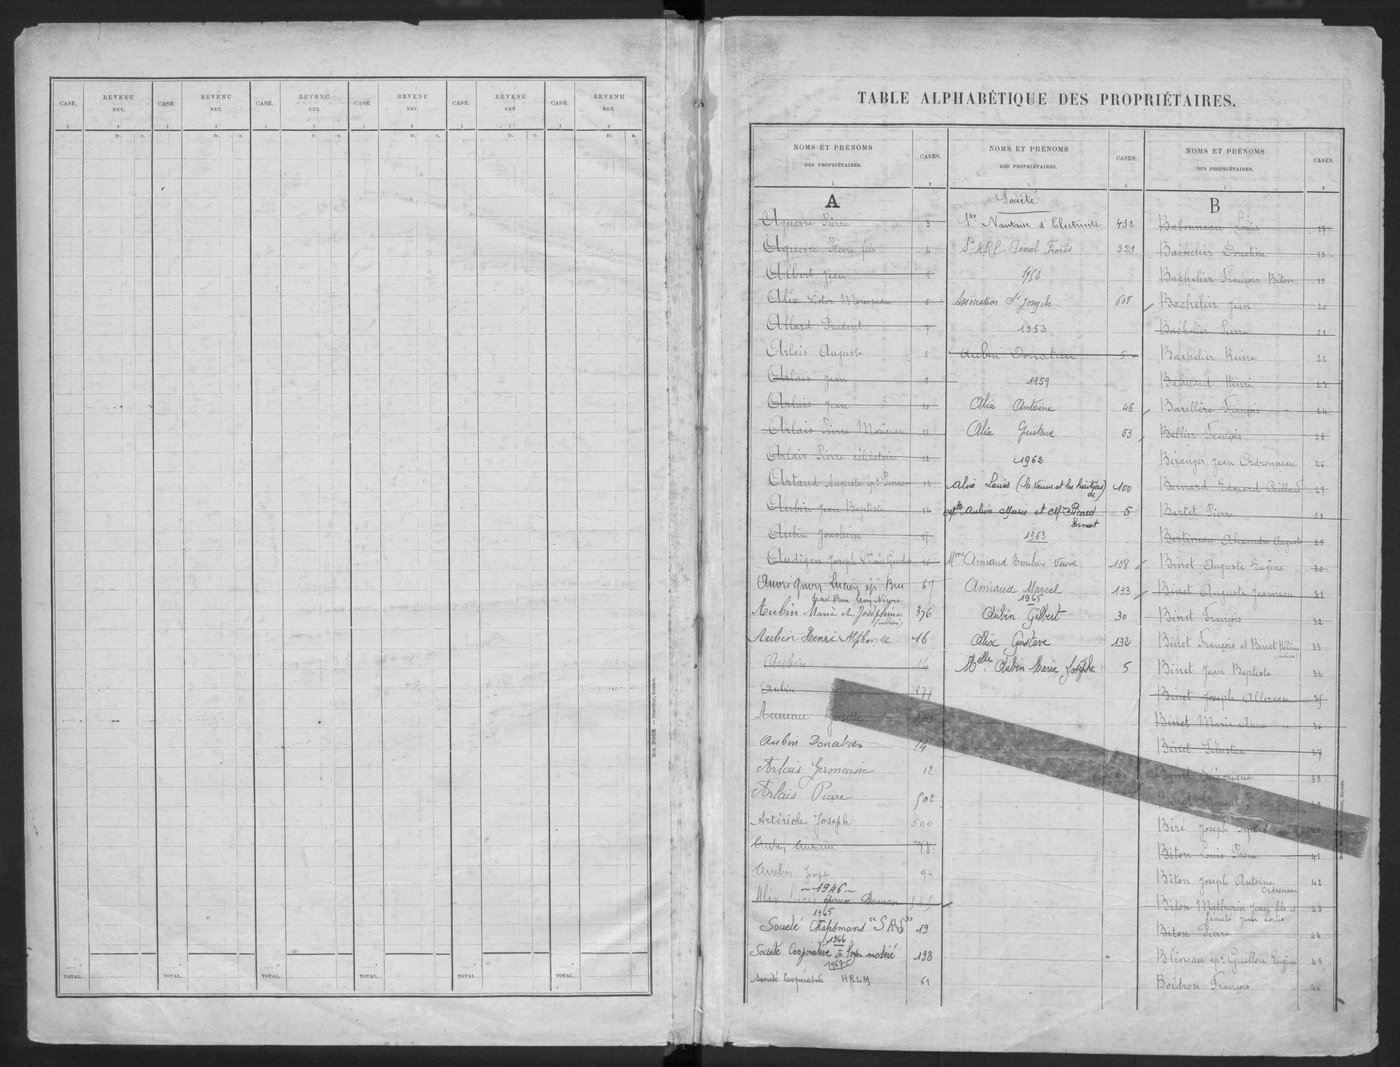 CASE. REVENU NET. CASE. REVENU NET. CASE. REVENU NET. CASE. REVENU NET. CASE. REVENU NET. CASE. REVENU NET.
1 2 1 2 1 2 1 2 1 2 1 2
fr. c. fr. c. fr. c. fr. c. fr. c. fr. c.
TOTAL. TOTAL. TOTAL. TOTAL. TOTAL. TOTAL.
TABLE ALPHABÉTIQUE DES PROPRIÉTAIRES.
NOMS ET PRÉNOMS
DES PROPRIÉTAIRES.
CASES.
1 2
A
Aguesse Pierre 3
Aguesse Pierre fils 4
Albert Jean 5
Alix Victor Morisseau 6
Allard Prudent 7
Arlais Auguste 8
Arlais Jean 9
Arlais Jean 10
Arlais Pierre Moriceau 11
Arlais Pierre célibataire 12
Artaud Auguste 13
Aubin Jean Baptiste 14
Aubin Joachim 15
Audigan Joseph 16
Lucien 67
Aubin Marie et Joséphine 376
Aubin Henri Alphonse 16
Aubin 14
Aubin 177
Auneau
Aubin Donatien 14
Arlais Germaine 12
Arlais Pierre 502
Artériole Joseph 500
Antoine 78
Aubin
~ 1946 ~
Alix
1965
Société Chapsmans "SAS" 19
1966
Société Coopérative à loyer modéré 198
1967
Société Coopérative HRLM 61
NOMS ET PRÉNOMS
DES PROPRIÉTAIRES.
CASES.
1 2
Société
Sté Nantaise d'Electricité 432
S.A.R.L. Frères 321
1952
Association St Joseph 608
1953
Aubin Donatien 5
1959
Alix Antoine 46
Alix Gustave 53
1962
Alix Louis (la veuve et les héritiers de) 100
Mlle Aubin Marie et Mr Picard Ernest 5
1963
Mme Amiaud Emilien Veuve 108
Amiaud Marcel 133
1965
Aubin Gilbert 30
Alix Gustave 132
Melle Aubin Marie Josèphe 5
NOMS ET PRÉNOMS
DES PROPRIÉTAIRES.
CASES.
1 2
B
Babonneau Louis 17
Bachelier Donatien 18
Bachelier François Biton 19
Bachelier Jean 20
Bachelier Pierre 21
Bachelier Reine 22
Bahuaud Henri 23
Barillère François 24
Bellier François 25
Béranger Jean Ordronneau 26
Bernard Edouard 27
Bertet Pierre 28
Bertineau Alexandre Auguste 29
Binet Auguste Eugène 30
Binet Auguste Jeanneau 31
Binet François 32
Binet François et Binet Hélène 33
Binet Jean Baptiste 34
Binet Joseph Allereau 35
Binet Marie Anne 36
Binet Sébastien 37
Véronique 38
Biré Joseph
Biton Louis Prou 41
Biton Joseph Antoine Ordronneau 42
Biton Mathurin Jean fils et 43
Biton Pierre 44
Blineau épx Guillou Eugène 45
Boidron François 46